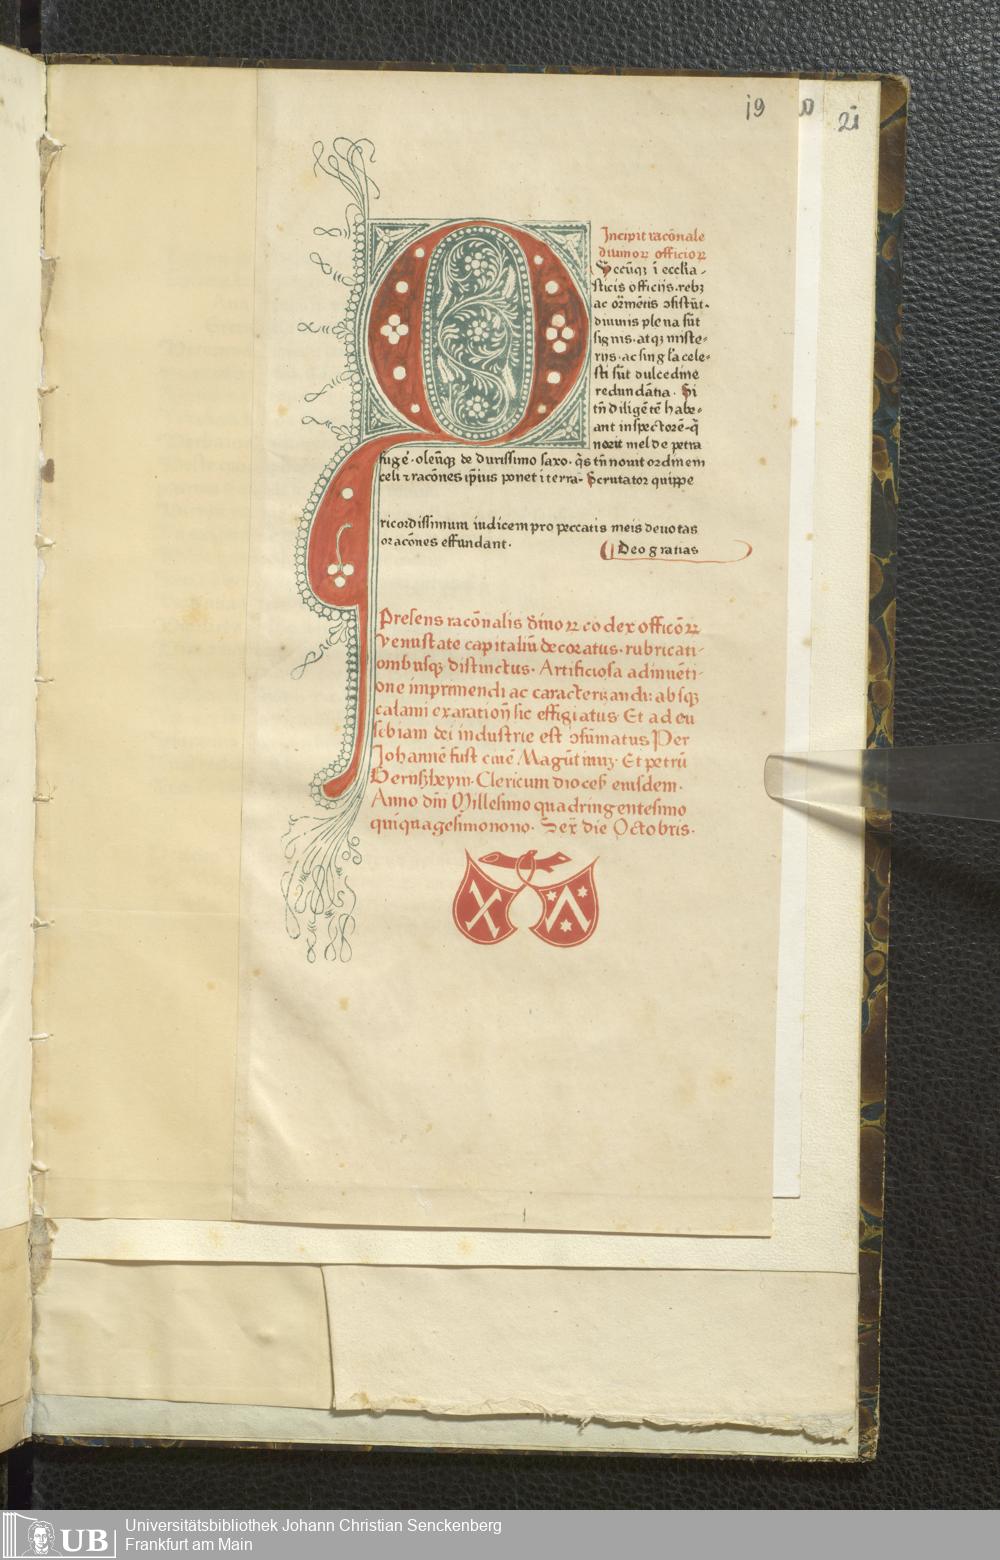 19 21
Incipit racōnale
diuinoꝝ officioꝝ
Qecūqꝫ ī eccl̄ia-
sticis officijs.rebꝫ
ac orn̄mētis ↄsistūt.
diuinis plena sūt
signis.atqꝫ miste-
rijs.ac singl'a cele-
sti sūt dulcedine
redundātia. Si
tn̄ diligētē habe-
ant inspectorē.q̄
norit mel de petra
fugē.oleūqꝫ de durissimo saxo. q̄s tn̄ nouit ordinem
celi ⁊ racōnes ip̄ius ponet ī terra. Scrutator quippe
ricordissimum iudicem pro peccatis meis deuotas
oracōnes effundant.
Deo gratias
Presens racōnalis diuinoꝝ codex officōꝝ
venustate capitaliū decoratus.rubricati-
onibusqꝫ distinctus. Artificiosa adinuēti-
one imprimendi ac caracterizandi: absqꝫ
calami exaratioñ sic effigiatus. Et ad eu
sebiam dei industrie est ↄsūmatus Per
Johannē fust ciuē Magūtinuꝫ. Et petrū
Gernsꝫheym. Clericum dioceß eiusdem.
Anno dn̄i Millesimo quadringentesimo
quīquagesimonono. Sex̄ die Octobris.
UB
Universitätsbibliothek Johann Christian Senckenberg
Frankfurt am Main